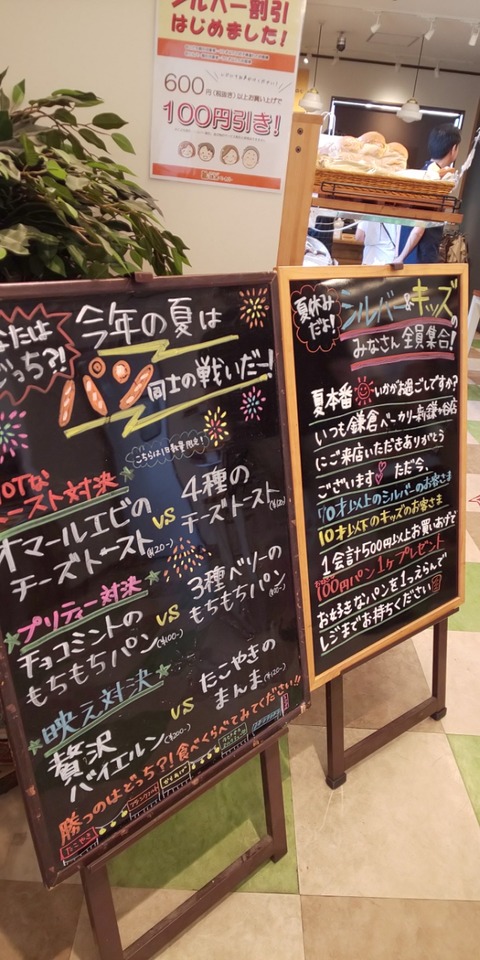 シルバー割引
はじめました!
600円(税抜き)以上お買い上げで
100円引き!
あなたは
どっち?!
今年の夏は
パン同士の戦いだー!
こちらは1日数量限定!
HOTな
トースト対決
オマールエビの
チーズトースト
VS
4種の
チーズトースト
プリティー対決
チョコミントの
もちもちパン
VS
3種ベリーの
もちもちパン
映え対決
贅沢
バイエルン
VS
たこやきの
まんま
勝つのはどっち?!食べくらべてみてください!!
夏休み
だよ!
シルバー&キッズの
みなさん全員集合!
夏本番いかがお過ごしですか?
いつも鎌倉ベーカリー新鎌ヶ谷店
にご来店いただきありがとう
ございます ただ今、
70才以上のシルバーのお客さま
10才以下のキッズのお客さま
1会計で500円以上お買いあげで
100円パン1ヶプレゼント
お好きなパンを1つえらんで
レジまでお持ちください